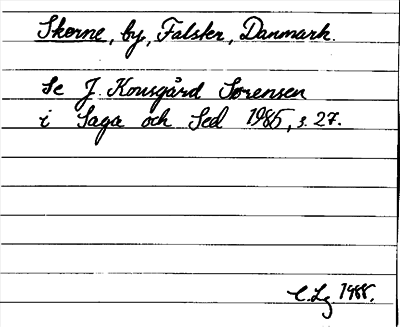 Skerne, by, Falster, Danmark.
Se J. Kousgård Sørensen
i Saga och Sed 1985, s. 27.
C.Lg 1988.